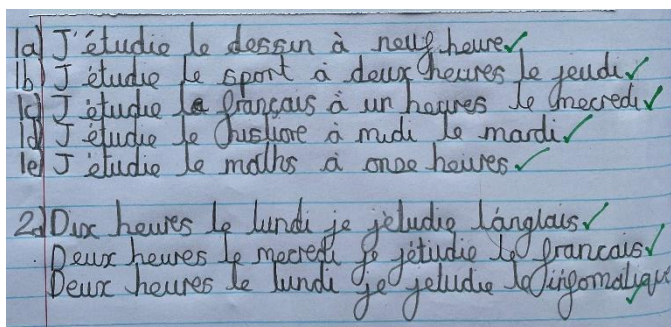 1a) J'étudie le dessin à neuf heure
1b) J'étudie le sport à deux heures le jeudi
1c) J'étudie le français à un heures le mecredi
1d) J'étudie le histiore à midi le mardi
1e) J'étudie le maths à onze heures
2a) Dix heures le lundi je j'etudie l'anglais
Deux heures le mecredi je j'étudie le francais
Deux heures le lundi je jetudie le